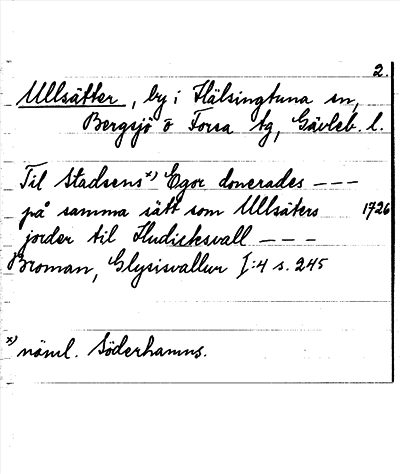 2.
Ullsätter, by i Hälsingtuna sn,
Bergsjö o Forsa tg, Gävleb. l.
Til Stadsens x) Egor donerades ---
på samma sätt som Ullsäters 1726
jorder til Hudicksvall ---
Broman, Glysisvallur I:4 s. 245
x) näml. Söderhamns.